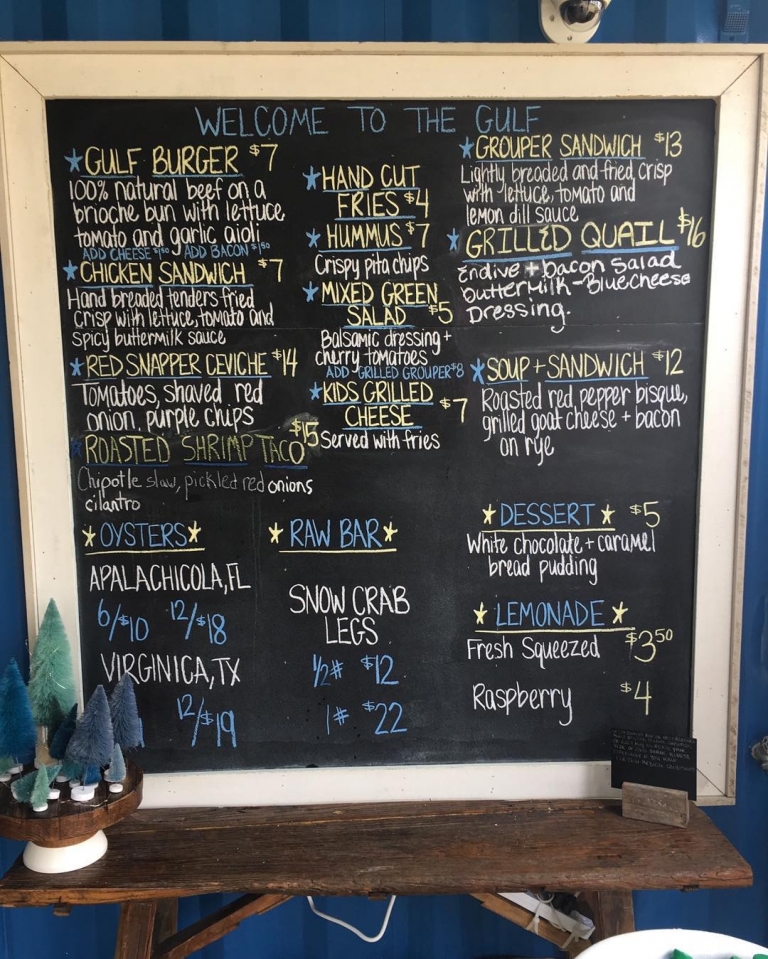 WELCOME TO THE GULF
GULF BURGER $7
100% natural beef on a
brioche bun with lettuce,
tomato and garlic aioli
ADD CHEESE $1.50 ADD BACON $1.50
CHICKEN SANDWICH $7
Hand breaded tenders fried
crisp with lettuce, tomato and
spicy buttermilk sauce
RED SNAPPER CEVICHE $14
Tomatoes, shaved red
onion, purple chips
ROASTED SHRIMP TACO $15
Chipotle slaw, pickled red onions
cilantro
HAND CUT
FRIES $4
HUMMUS $7
Crispy pita chips
MIXED GREEN
SALAD $5
Balsamic dressing +
cherry tomatoes
ADD GRILLED GROUPER $8
KIDS GRILLED
CHEESE $7
Served with fries
GROUPER SANDWICH $13
Lightly breaded and fried, crisp
with lettuce, tomato and
lemon dill sauce
GRILLED QUAIL $16
Endive + bacon Salad
buttermilk-Bluecheese
Dressing.
SOUP + SANDWICH $12
Roasted red pepper bisque,
grilled goat cheese + bacon
on rye
OYSTERS
APALACHICOLA, FL
6/$10 12/$18
VIRGINICA, TX
12/$19
RAW BAR
SNOW CRAB
LEGS
1/2# $12
1# $22
DESSERT $5
White chocolate + caramel
bread pudding
LEMONADE
Fresh Squeezed $3.50
Raspberry $4